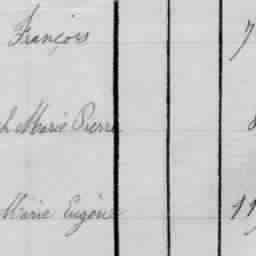 François 7
h Marie Pierre
Marie Eugène 11